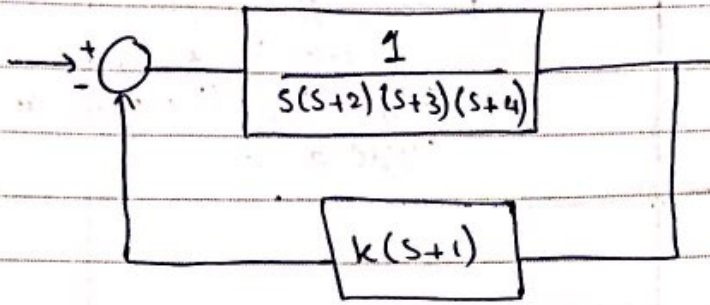 +
-
1
S(S+2)(S+3)(S+4)
K(S+1)